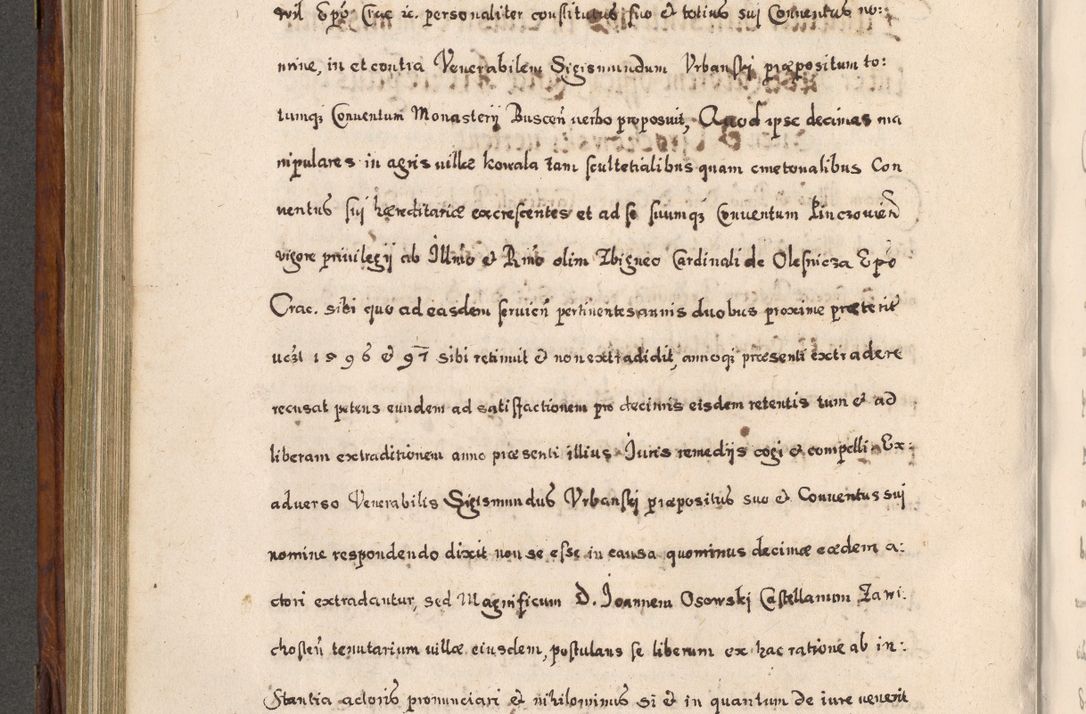 Epō Crac ic. personaliter constitutus suo et totius sui Conventus no:
mine, in et contra Venerabilem Sigismundum Vrbanski præpositum to:
tumq; Conuentum Monasterij Buscen̄ uerbo proposuit, Quod ipse decimas ma
nipulares in agris uillæ kowala tam scultetialibus quam cmetonalibus Con
uentus sui hæreditariæ excrescentes et ad se suumq; Conuentum Pinczouien̄
vigore priuilegij ab Illm̄o et Rm̄o olim Zbigneo Cardinali de Olesnicza Epō
Crac. sibi quo ad easdem seruien̄ pertinentes annis duobus proxime præterit
uczt 1596 et 97 sibi retinuit et non extradidit, annoq; præsenti extradere
recusat petens eundem ad satisfactionem pro decimis eisdem retentis tum et ad
liberam extraditionem anno præsenti illius Iuris remedijs cogi et compelli. Ex:
aduerso Venerabilis Sigismundus Vrbanskj præpositus suo et Conuentus sui
nomine respondendo dixit non se esse in causa quominus decimæ eædem a:
ctori extradantur, sed Magnificum D. Ioannem Osowski Castellanum Zawi:
chosten̄ tenutarium uillæ eiusdem, postulans se liberum ex hac ratione ab in:
stantia actoris pronunciari et nihilominus si et in quantum de iure uenerit